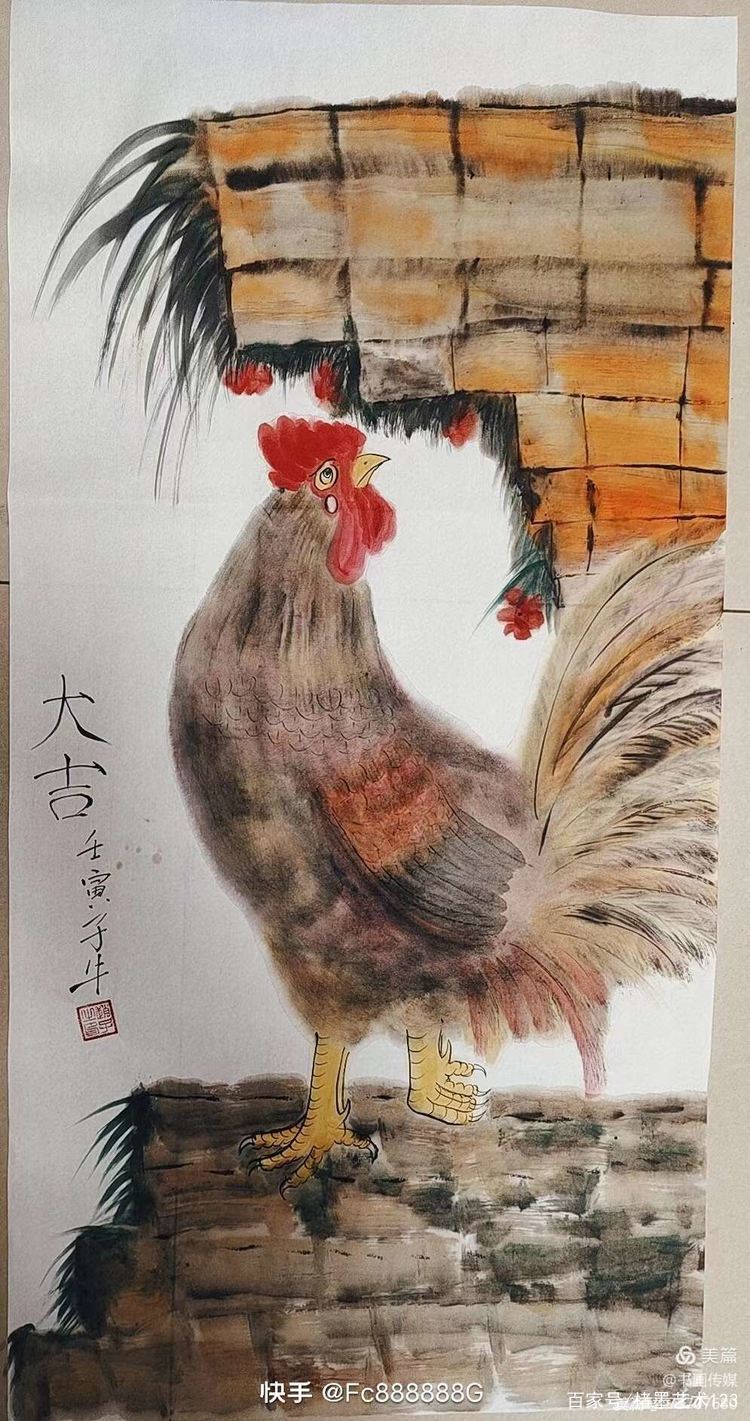 大吉
壬寅子牛
美篇
@书画传媒
快手 @Fc888888G
百家号/楮墨艺术123